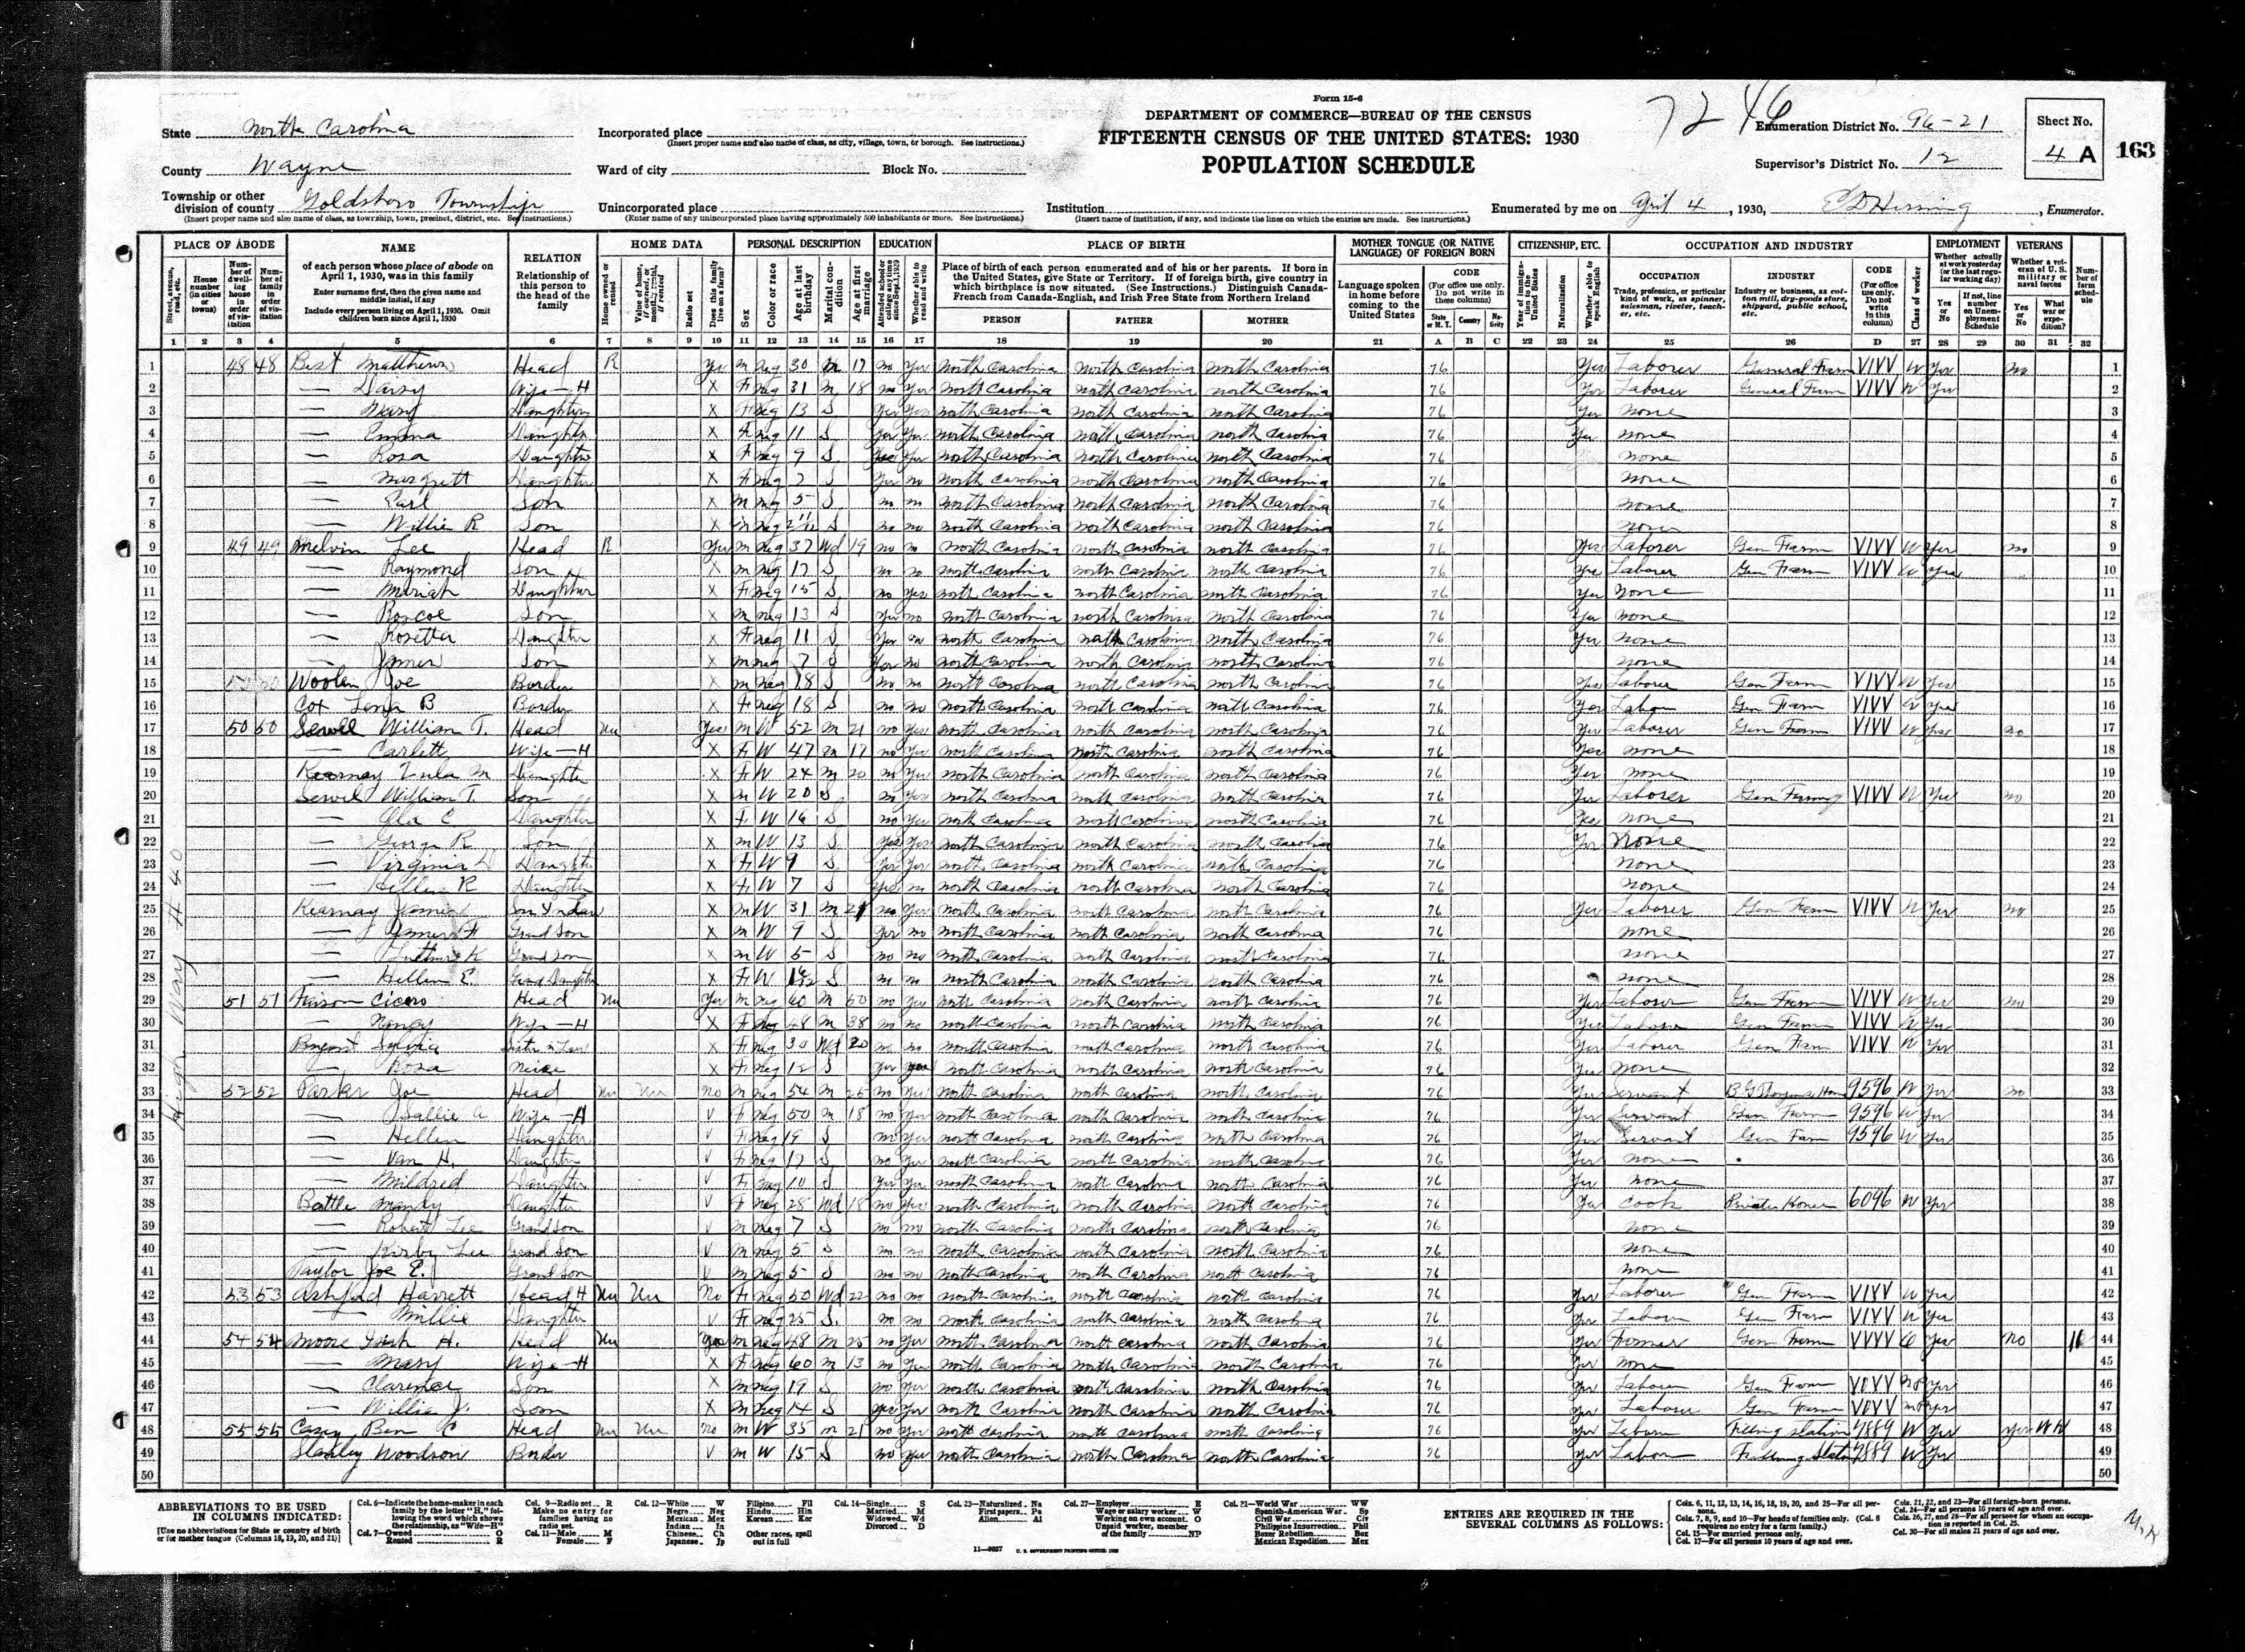 Form 15-6
DEPARTMENT OF COMMERCE—BUREAU OF THE CENSUS
FIFTEENTH CENSUS OF THE UNITED STATES: 1930
POPULATION SCHEDULE
72 46
State North Carolina
County Wayne
Township or other division of county Goldsboro Township
(Insert proper name and also name of class, as township, town, precinct, district, etc. See instructions.)
Incorporated place
(Insert proper name and also name of class, as city, village, town, or borough. See instructions.)
Ward of city Block No.
Unincorporated place
(Enter name of any unincorporated place having approximately 500 inhabitants or more. See instructions.)
Institution
(Insert name of institution, if any, and indicate the lines on which the entries are made. See instructions.)
Enumeration District No. 96-21
Supervisor's District No. 12
Sheet No.
4 A
163
Enumerated by me on April 4, 1930, Enumerator.
PLACE OF ABODE NAME RELATION HOME DATA PERSONAL DESCRIPTION EDUCATION PLACE OF BIRTH MOTHER TONGUE (OR NATIVE LANGUAGE) OF FOREIGN BORN CITIZENSHIP, ETC. OCCUPATION AND INDUSTRY EMPLOYMENT VETERANS
of each person whose place of abode on April 1, 1930, was in this family
Enter surname first, then the given name and middle initial, if any
Include every person living on April 1, 1930. Omit children born since April 1, 1930
Relationship of this person to the head of the family
Place of birth of each person enumerated and of his or her parents. If born in the United States, give State or Territory. If of foreign birth, give country in which birthplace is now situated. (See Instructions.) Distinguish Canada-French from Canada-English, and Irish Free State from Northern Ireland
PERSON FATHER MOTHER
Language spoken in home before coming to the United States
1 2 3 4 5 6 7 8 9 10 11 12 13 14 15 16 17 18 19 20 21 A B C 22 23 24 25 26 D 27 28 29 30 31 32
1 48 48 Best Matthew Head R Yes M Neg 30 M 17 no Yes North Carolina North Carolina North Carolina 76 Yes Laborer General Farm VIVV W Yes no 1
2 — Daisy Wife—H X F Neg 31 M 18 no Yes North Carolina North Carolina North Carolina 76 Yes Laborer General Farm VIVV W Yes 2
3 — Mary Daughter X F Neg 13 S Yes Yes North Carolina North Carolina North Carolina 76 Yes None 3
4 — Emma Daughter X F Neg 11 S Yes Yes North Carolina North Carolina North Carolina 76 Yes None 4
5 — Rosa Daughter X F Neg 9 S Yes Yes North Carolina North Carolina North Carolina 76 None 5
6 — Margrett Daughter X F Neg 7 S Yes no North Carolina North Carolina North Carolina 76 None 6
7 — Earl Son X M Neg 5 S no no North Carolina North Carolina North Carolina 76 None 7
8 — Willie R Son X M Neg 2 11/12 S no no North Carolina North Carolina North Carolina 76 None 8
9 49 49 Melvin Lee Head R Yes M Neg 37 Wd 19 no no North Carolina North Carolina North Carolina 76 Yes Laborer Gen Farm VIVV W Yes no 9
10 — Raymond Son X M Neg 17 S no no North Carolina North Carolina North Carolina 76 Yes Laborer Gen Farm VIVV W Yes 10
11 — Mariah Daughter X F Neg 15 S no Yes North Carolina North Carolina North Carolina 76 Yes None 11
12 — Roscoe Son X M Neg 13 S Yes no North Carolina North Carolina North Carolina 76 Yes None 12
13 — Rosetta Daughter X F Neg 11 S Yes no North Carolina North Carolina North Carolina 76 Yes None 13
14 — James Son X M Neg 7 S Yes no North Carolina North Carolina North Carolina 76 None 14
15 Wooten Joe Border X M Neg 18 S no no North Carolina North Carolina North Carolina 76 Yes Laborer Gen Farm VIVV W Yes 15
16 Cox Lena B Border X F Neg 18 S no no North Carolina North Carolina North Carolina 76 Yes Labor Gen Farm VIVV W Yes 16
17 50 50 Sewell William T. Head Un Yes M W 52 M 21 no Yes North Carolina North Carolina North Carolina 76 Yes Laborer Gen Farm VIVV W Yes no 17
18 — Carlett Wife—H X F W 47 M 17 no Yes North Carolina North Carolina North Carolina 76 Yes None 18
19 Kearnay Lula M Daughter X F W 24 M 20 no Yes North Carolina North Carolina North Carolina 76 Yes None 19
20 Sewel William T. Son X M W 20 S no Yes North Carolina North Carolina North Carolina 76 Yes Laborer Gen Farming VIVV W Yes no 20
21 — Ola C Daughter X F W 16 S no Yes North Carolina North Carolina North Carolina 76 Yes None 21
22 — George R Son X M W 13 S Yes Yes North Carolina North Carolina North Carolina 76 Yes None 22
23 — Virginia D Daughter X F W 9 S Yes Yes North Carolina North Carolina North Carolina 76 None 23
24 — Hellen R Daughter X F W 7 S Yes no North Carolina North Carolina North Carolina 76 None 24
25 Kearnay James Son In Law X M W 31 M 21 no Yes North Carolina North Carolina North Carolina 76 Yes Laborer Gen Farm VIVV W Yes no 25
26 — James H Grand Son X M W 9 S Yes no North Carolina North Carolina North Carolina 76 None 26
27 — Luther K Grand Son X M W 5 S no no North Carolina North Carolina North Carolina 76 None 27
28 — Hellen E. Grand Daughter X F W S no no North Carolina North Carolina North Carolina 76 None 28
29 51 51 Faison Cicero Head Un Yes M Neg 60 M 50 no Yes North Carolina North Carolina North Carolina 76 Yes Laborer Gen Farm VIVV W Yes no 29
30 — Nancy Wife—H X F Neg 48 M 38 no no North Carolina North Carolina North Carolina 76 Yes Laborer Gen Farm VIVV W Yes 30
31 Sylvia Sister in Law X F Neg 30 Wd 20 no no North Carolina North Carolina North Carolina 76 Yes Laborer Gen Farm VIVV W Yes 31
32 — Rosa Neice X F Neg 12 S Yes Yes North Carolina North Carolina North Carolina 76 Yes None 32
33 52 52 Parker Joe Head Un Un No M Neg 54 M 25 no Yes North Carolina North Carolina North Carolina 76 Yes Servant 9596 W Yes no 33
34 — Sallie A Wife—H V F Neg 50 M 18 no Yes North Carolina North Carolina North Carolina 76 Yes Servant Gen Farm 9596 W Yes 34
35 — Hellen Daughter V F Neg 19 S no Yes North Carolina North Carolina North Carolina 76 Yes Servant Gen Farm 9596 W Yes 35
36 — Van H. Daughter V F Neg 17 S no Yes North Carolina North Carolina North Carolina 76 Yes None 36
37 — Mildred Daughter V F Neg 10 S Yes Yes North Carolina North Carolina North Carolina 76 Yes None 37
38 Battle Mandy Daughter V F Neg 28 Wd 18 no Yes North Carolina North Carolina North Carolina 76 Yes Cook Private Home 6096 W Yes 38
39 — Robert Lee Grand Son V M Neg 7 S no no North Carolina North Carolina North Carolina 76 None 39
40 — Kirby Lee Grand Son V M Neg 5 S no no North Carolina North Carolina North Carolina 76 None 40
41 Taylor Joe E. Grand Son V M Neg 5 S no no North Carolina North Carolina North Carolina 76 None 41
42 53 53 Ashford Harrett Head H Un Un No F Neg 50 Wd 22 no no North Carolina North Carolina North Carolina 76 Yes Laborer Gen Farm VIVV W Yes 42
43 — Millie Daughter V F Neg 25 S no no North Carolina North Carolina North Carolina 76 Yes Labor Gen Farm VIVV W Yes 43
44 54 54 Moore H. Head Un Yes M Neg 48 M 25 no Yes North Carolina North Carolina North Carolina 76 Yes Farmer Gen Farm VVVV O Yes no 44
45 — Mary Wife—H X F Neg 60 M 13 no Yes North Carolina North Carolina North Carolina 76 Yes None 45
46 — Clarence Son X M Neg 19 S no Yes North Carolina North Carolina North Carolina 76 Yes Laborer Gen Farm VOVV NP Yes 46
47 — Willie J. Son X M Neg 14 S Yes Yes North Carolina North Carolina North Carolina 76 Yes Laborer Gen Farm VOVV NP Yes 47
48 55 55 Casey Ben Head Un Un No M W 35 M 21 no Yes North Carolina North Carolina North Carolina 76 Yes Labor Filling Station 7889 W Yes Yes WW 48
49 Stanley Woodson Border V M W 15 S no Yes North Carolina North Carolina North Carolina 76 Yes Labor Filling Station 7889 W Yes 49
50 50
High Way # 40
ABBREVIATIONS TO BE USED IN COLUMNS INDICATED:
[Use no abbreviations for State or country of birth or for mother tongue (Columns 18, 19, 20, and 21)]
ENTRIES ARE REQUIRED IN THE SEVERAL COLUMNS AS FOLLOWS: